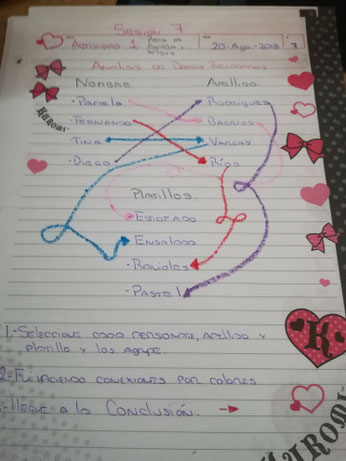 Sesión 7
Actividad 1
20-Ago-2018
7
Análisis de Datos
Nombre. Apellido.
-Pamela -Rodríguez
-Fernando -Barrios
-Tina -Vargas
-Diego -Ríos
Platillos.
-Estofado
-Ensalada
-Ravioles
-Pastel
1-Seleccione cada personaje, apellido y
platillo y los agrupe.
2-Fui haciendo conexiones por colores
-Llegue a la Conclusión. →
KUROMI
K
KUROMI